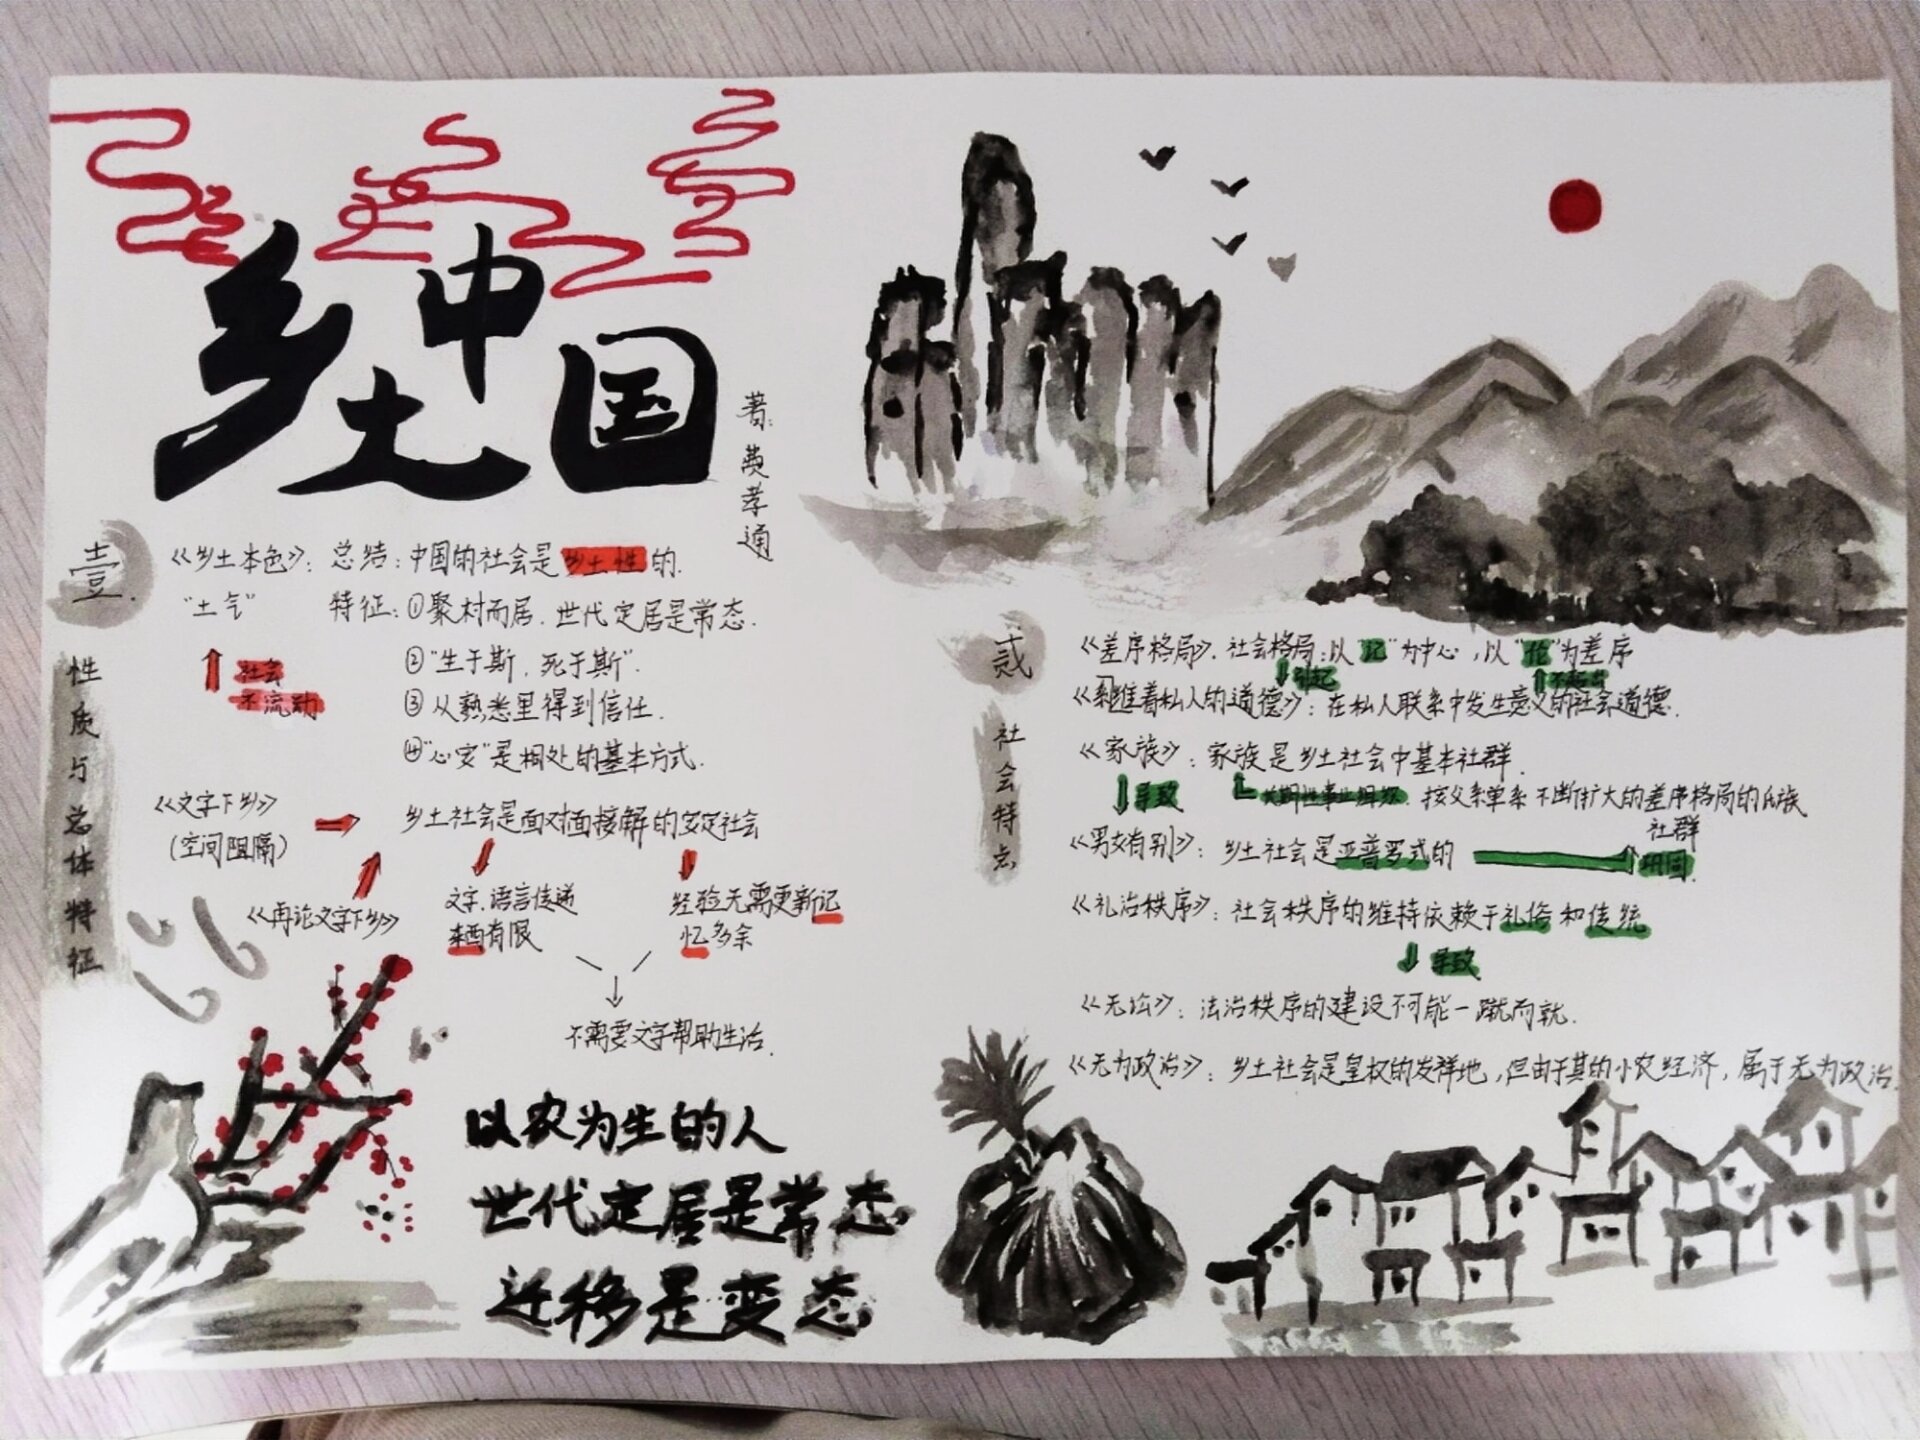 乡土中国
著：费孝通
壹.
性质与总体特征
《乡土本色》：总结：中国的社会是乡土性的.
"土气"
特征：①聚村而居.世代定居是常态.
社会
不流动
②"生于斯，死于斯".
③从熟悉里得到信任.
④"心安"是相处的基本方式.
《文字下乡》
(空间阻隔)
乡土社会是面对面接触的安定社会
《再论文字下乡》
文字.语言传递
东西有限
经验无需更新记
忆多余
不需要文字帮助生活.
以农为生的人
世代定居是常态
迁移是变态
贰
社会特点
《差序格局》.社会格局：以"己"为中心，以"伦"为差序
引起
《维系着私人的道德》：在私人联系中发生意义的社会道德.
《家族》：家族是乡土社会中基本社群.
导致
长期性事业组织.按父系单系不断扩大的差序格局的氏族
社群
《男女有别》：乡土社会是亚普罗式的
巩固.
《礼治秩序》：社会秩序的维持依赖于礼俗和传统
导致
《无讼》：法治秩序的建设不可能一蹴而就.
《无为政治》：乡土社会是皇权的发祥地，但由于其的小农经济，属于无为政治.